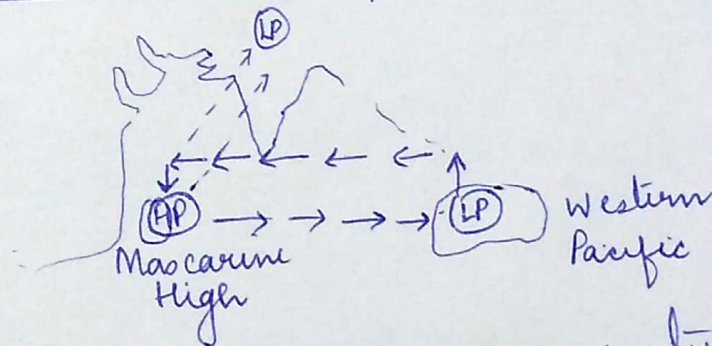 LP
HP
LP
Western
Pacific
Mascarine
High